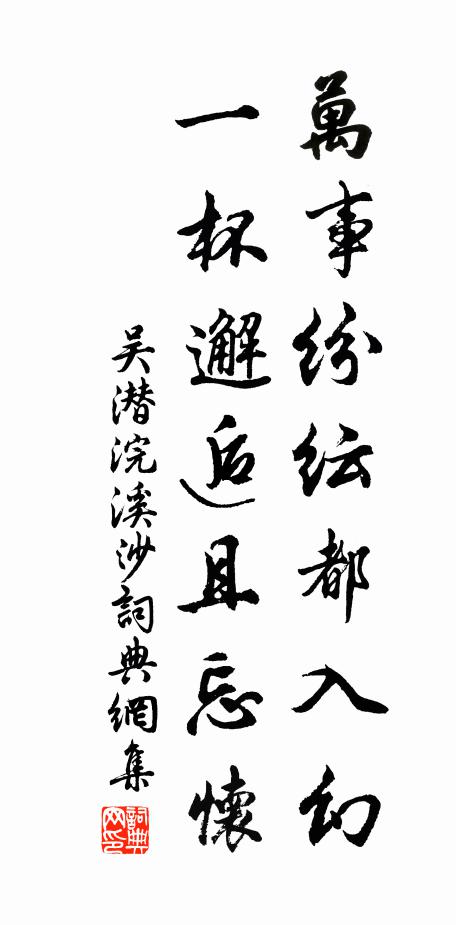 萬事紛紜都入幻
一杯邂逅且忘懷
吴潜浣溪沙詞典網集
詞典网印